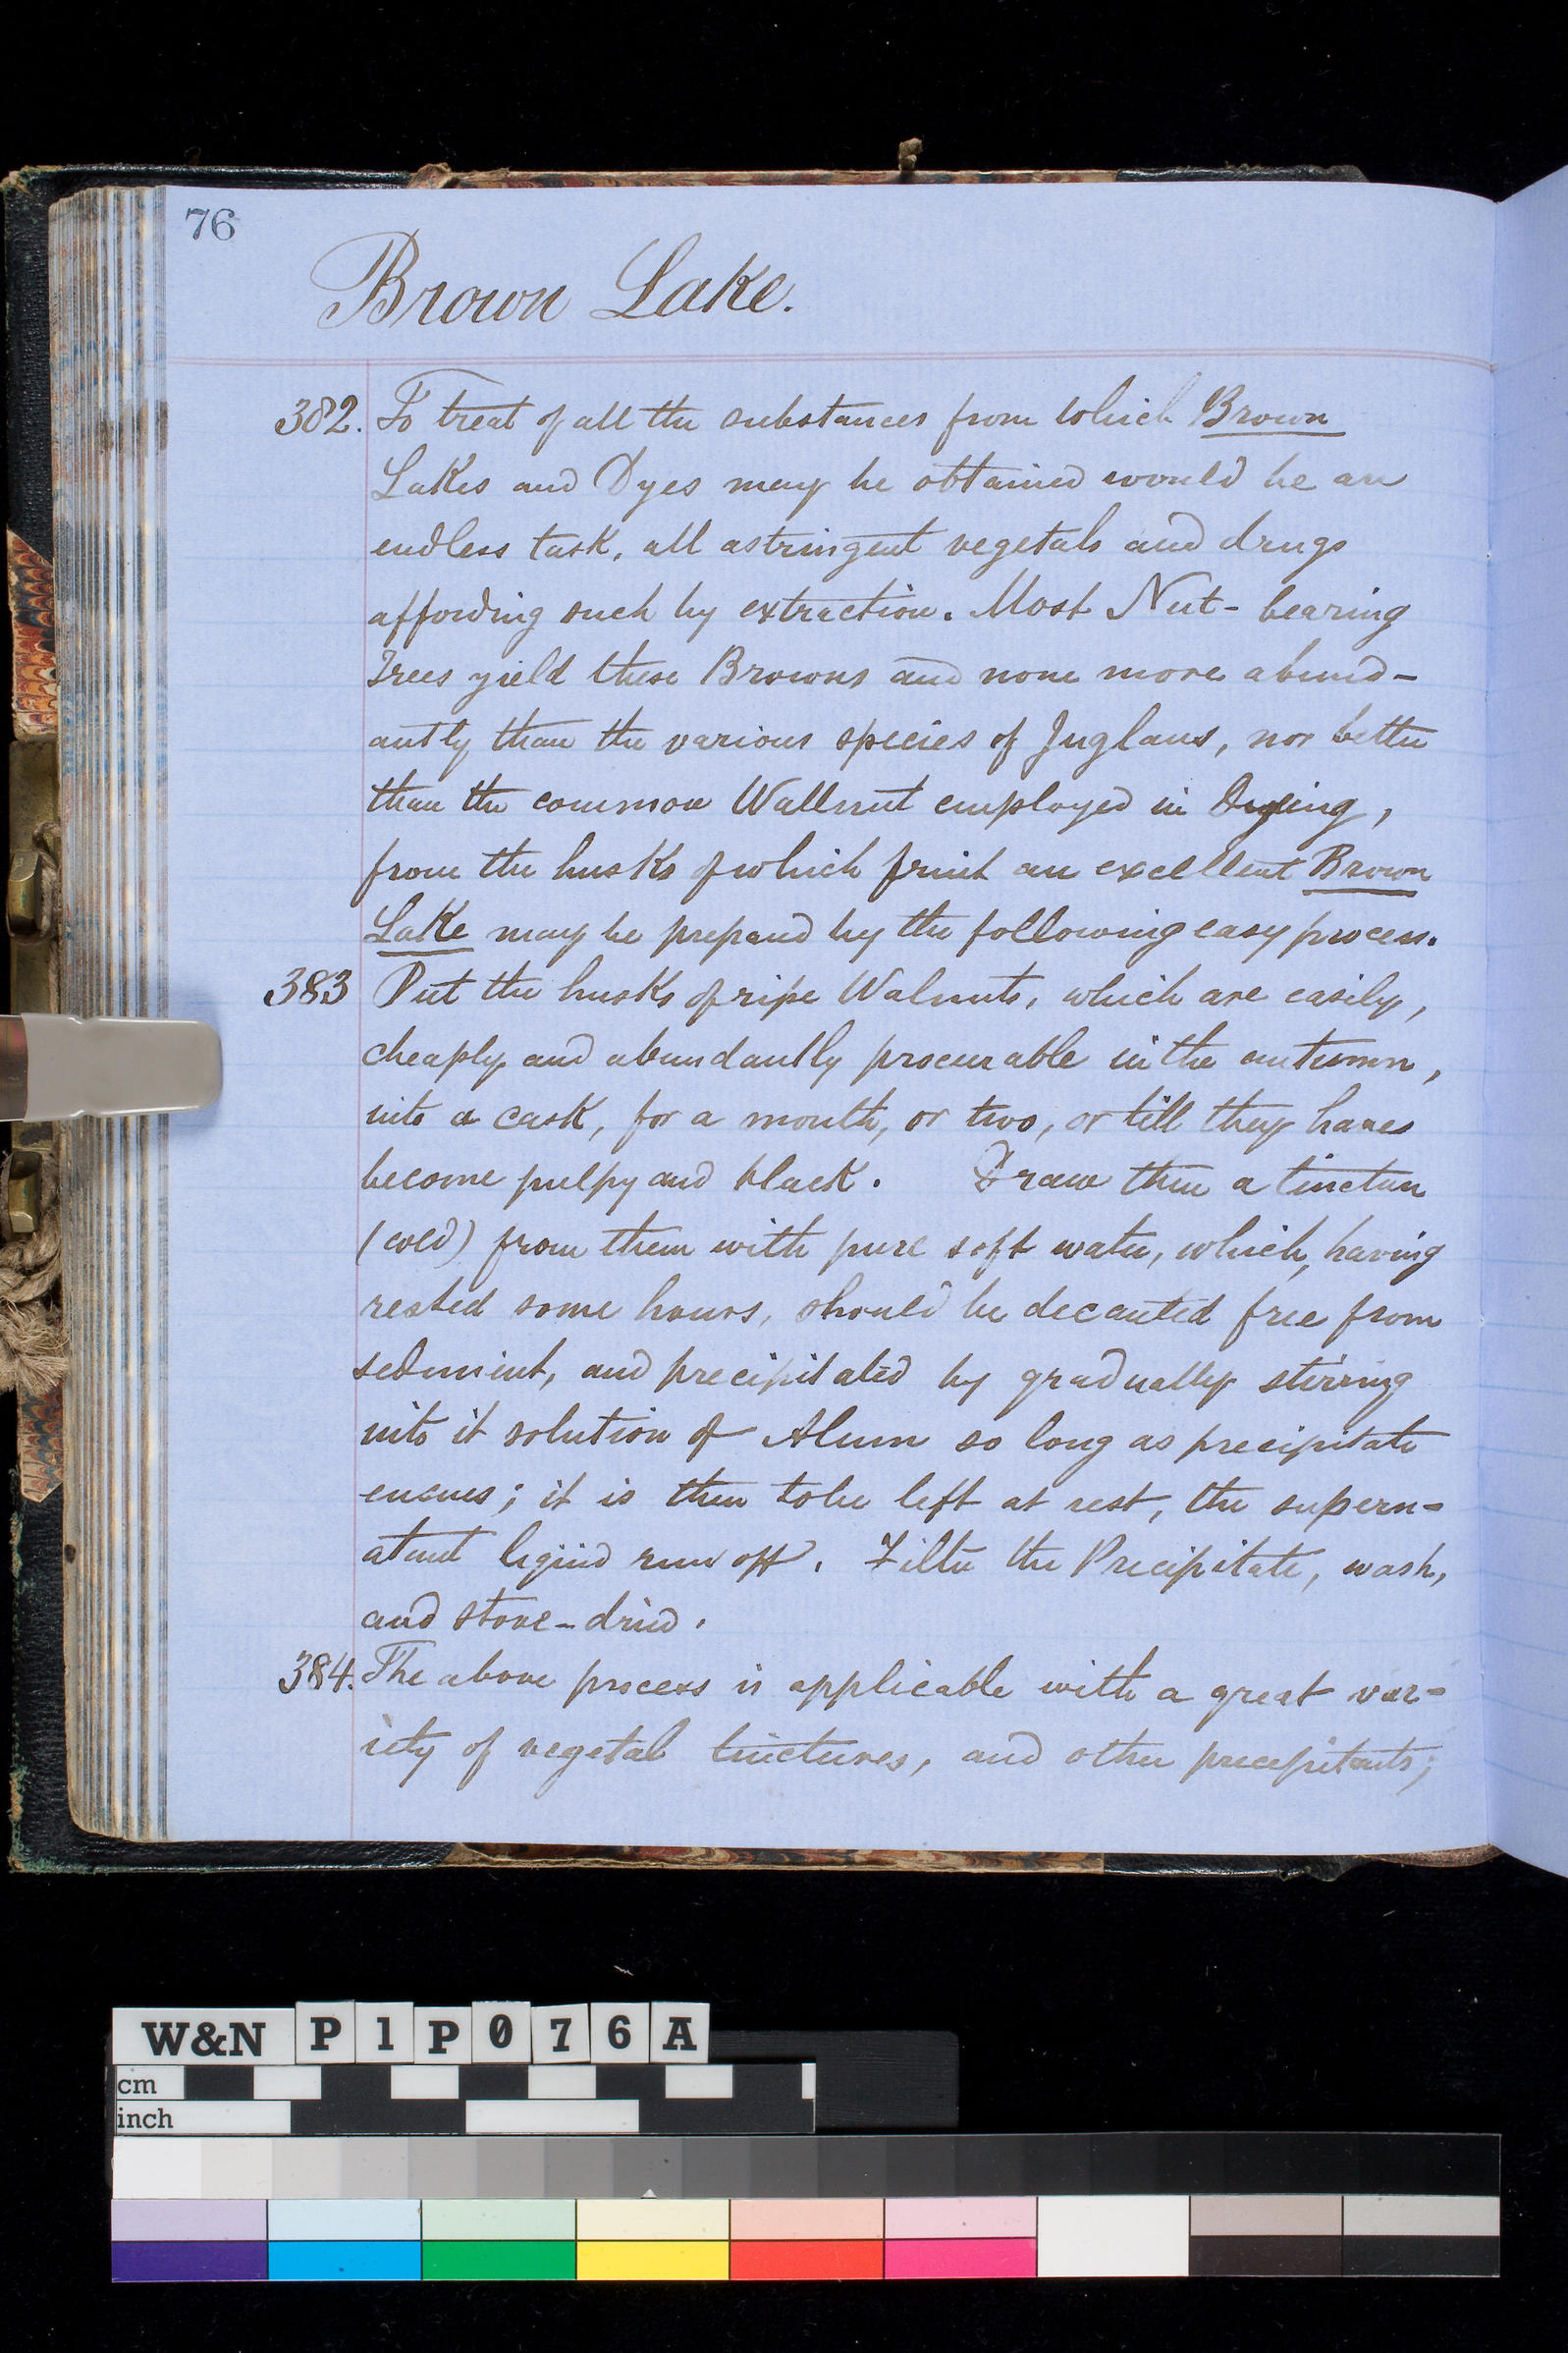 76
Brown Lake.
382. To treat of all the substances from which Brown
Lakes and Dyes may be obtained would be an
endless task, all astringent vegetals and drugs
affording such by extraction. Most Nut- bearing
Trees yield these Browns and none more abund-
antly than the various species of Juglans, nor better
than the common Wallnut employed in Dyeing,
from the husks of which fruit an excellent Brown
Lake may be prepared by the following easy process.
383 Put the husks of ripe Walnuts, which are easily,
cheaply and abundantly procurable in the autumn,
into a cask, for a month, or two, or till they have
become pulpy and black. Draw then a tincture
(cold) from them with pure soft water, which, having
rested some hours, should be decanted free from
sediment, and precipitated by gradually stirring
into it solution of Alum so long as precipitate
ensues; it is then to be left at rest, the supern-
atant liquid run off. Filter the Precipitate, wash,
and stove-dried.
384. The above process is applicable with a great var-
iety of vegetal tinctures, and other precipitants;
W&N P1P076A
cm
inch